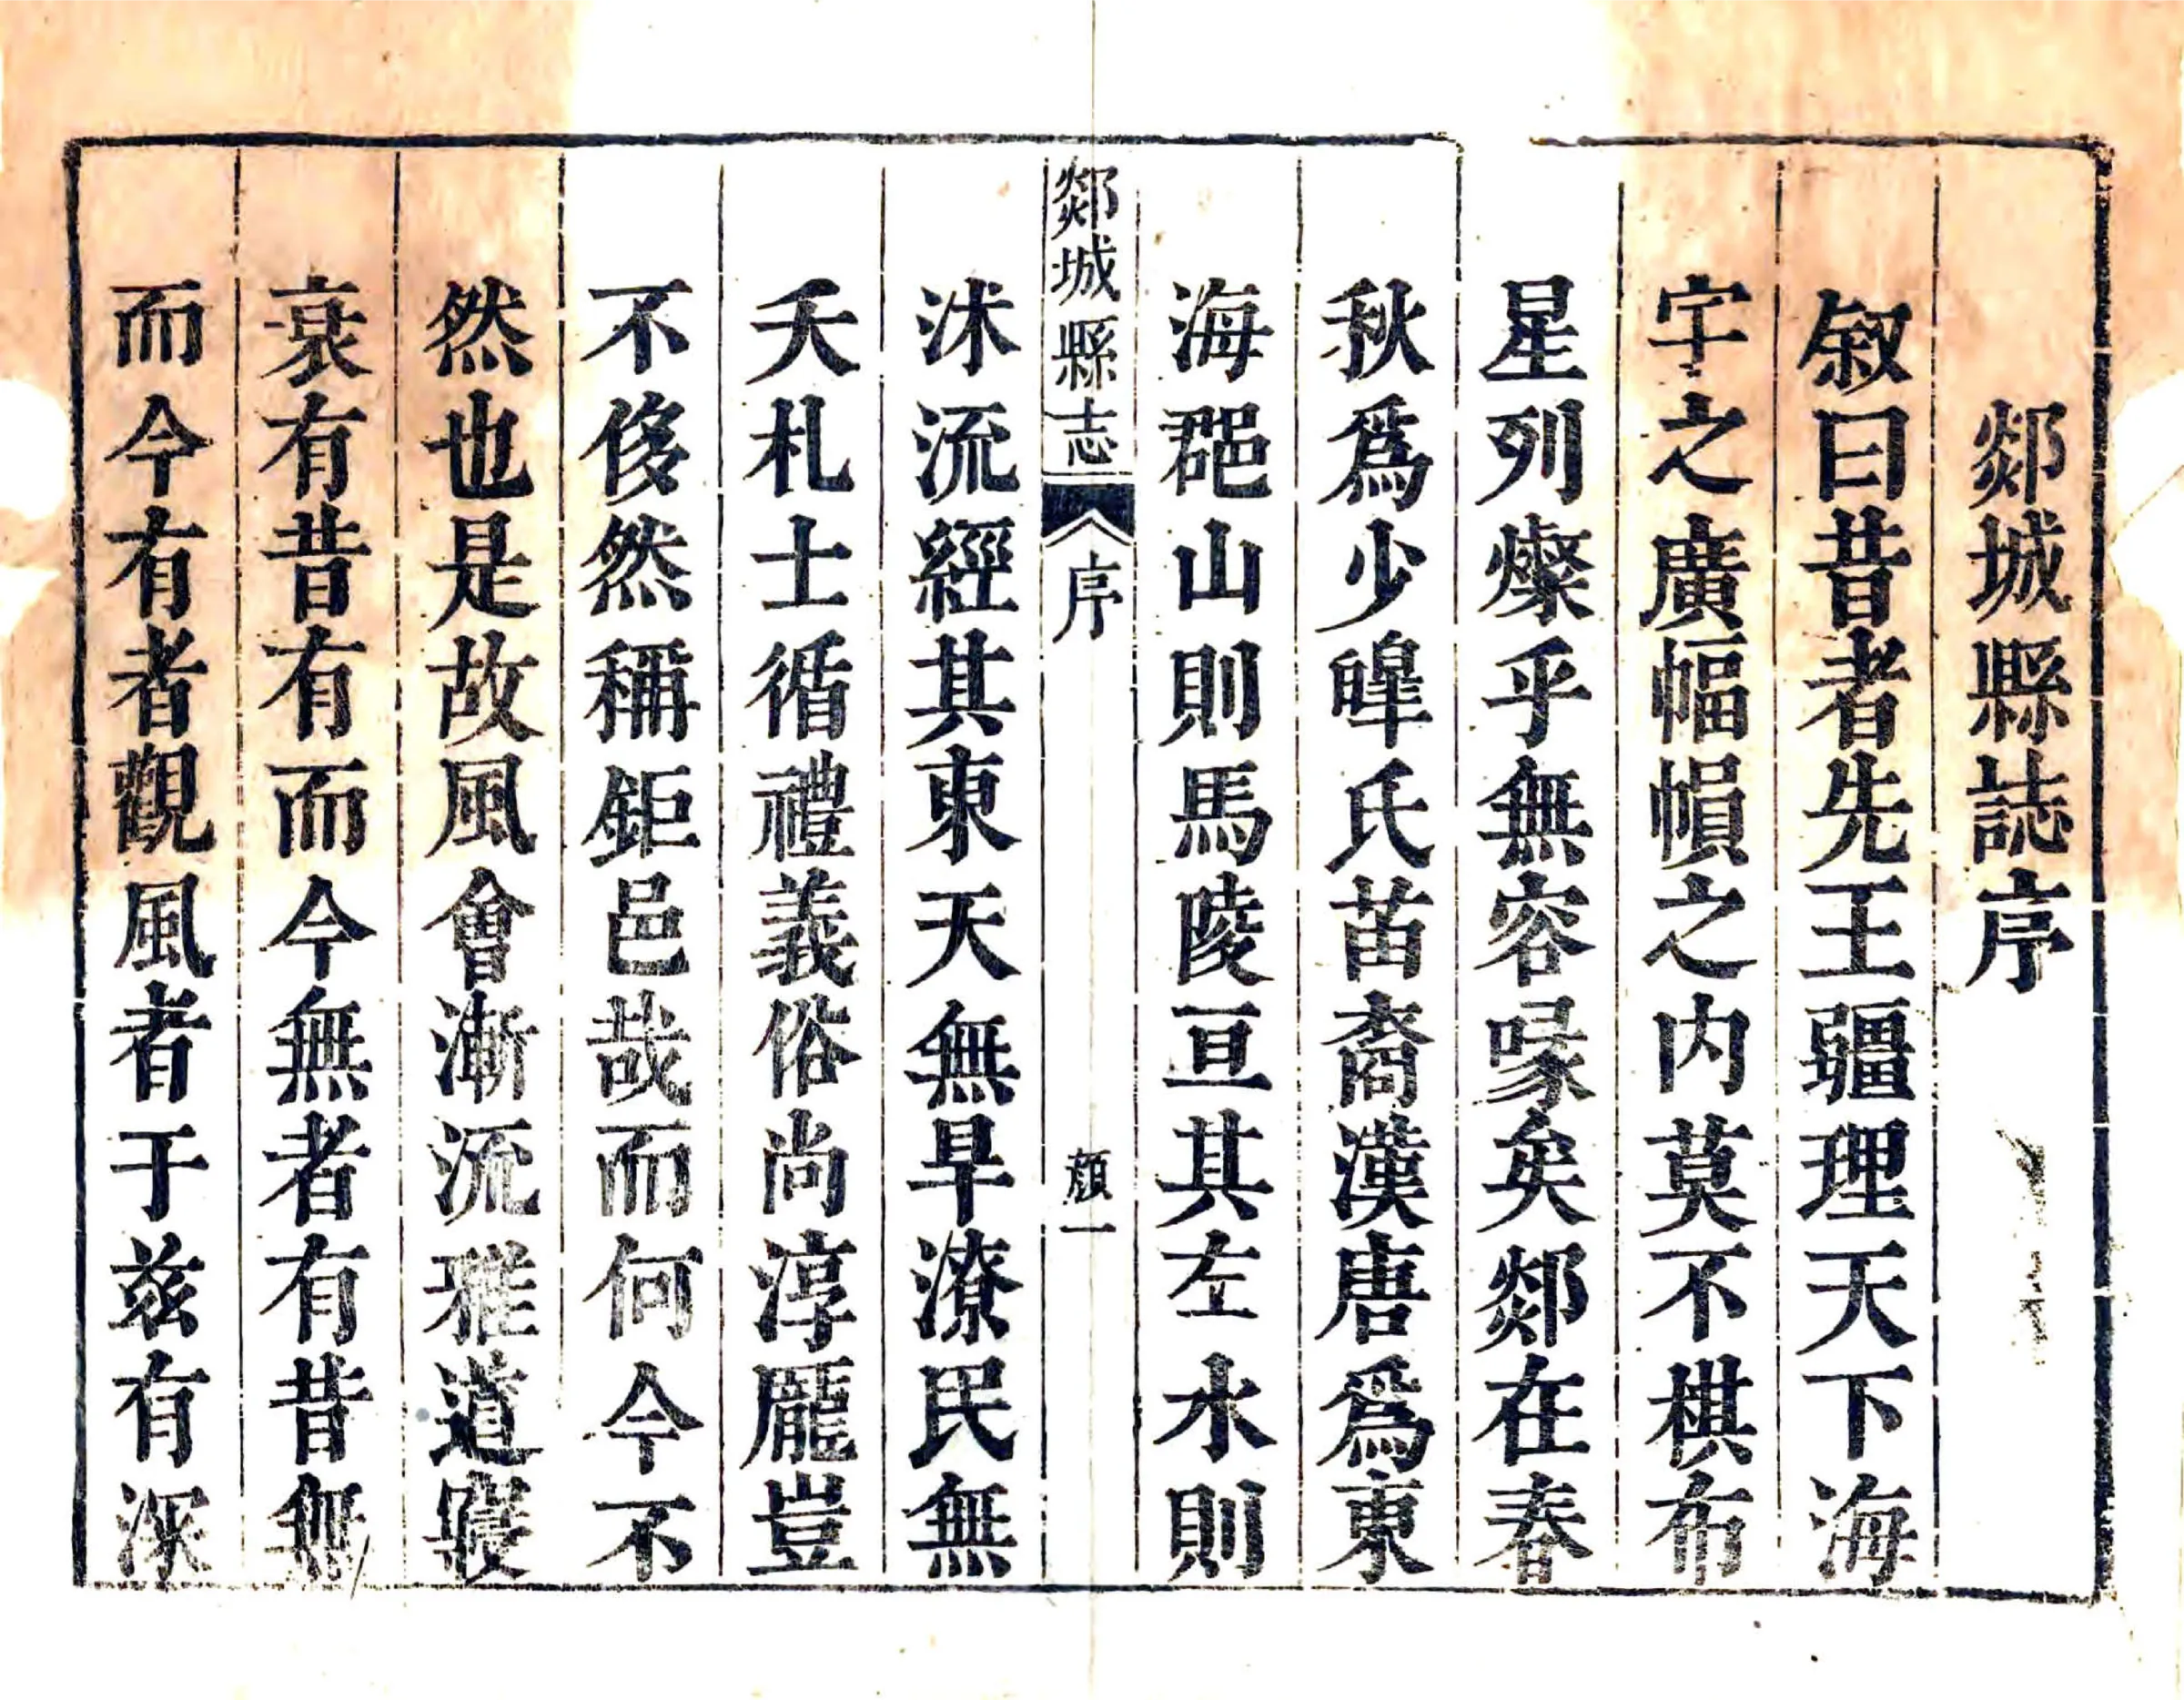 郯城縣誌序
叙曰昔者先王疆理天下海
宇之廣幅幀之内莫不棋布
星列燦乎無容喙矣郯在春
秋爲少皥氏苗裔漢唐爲東
海郡山則馬陵亘其左水則
郯城縣志 序 顏一
沭流經其東天無旱潦民無
夭札士循禮義俗尚淳龐豈
不侈然稱鉅邑哉而何今不
然也是故風會漸流雅道寖
衰有昔有而今無者有昔無
而今有者觀風者于兹有深